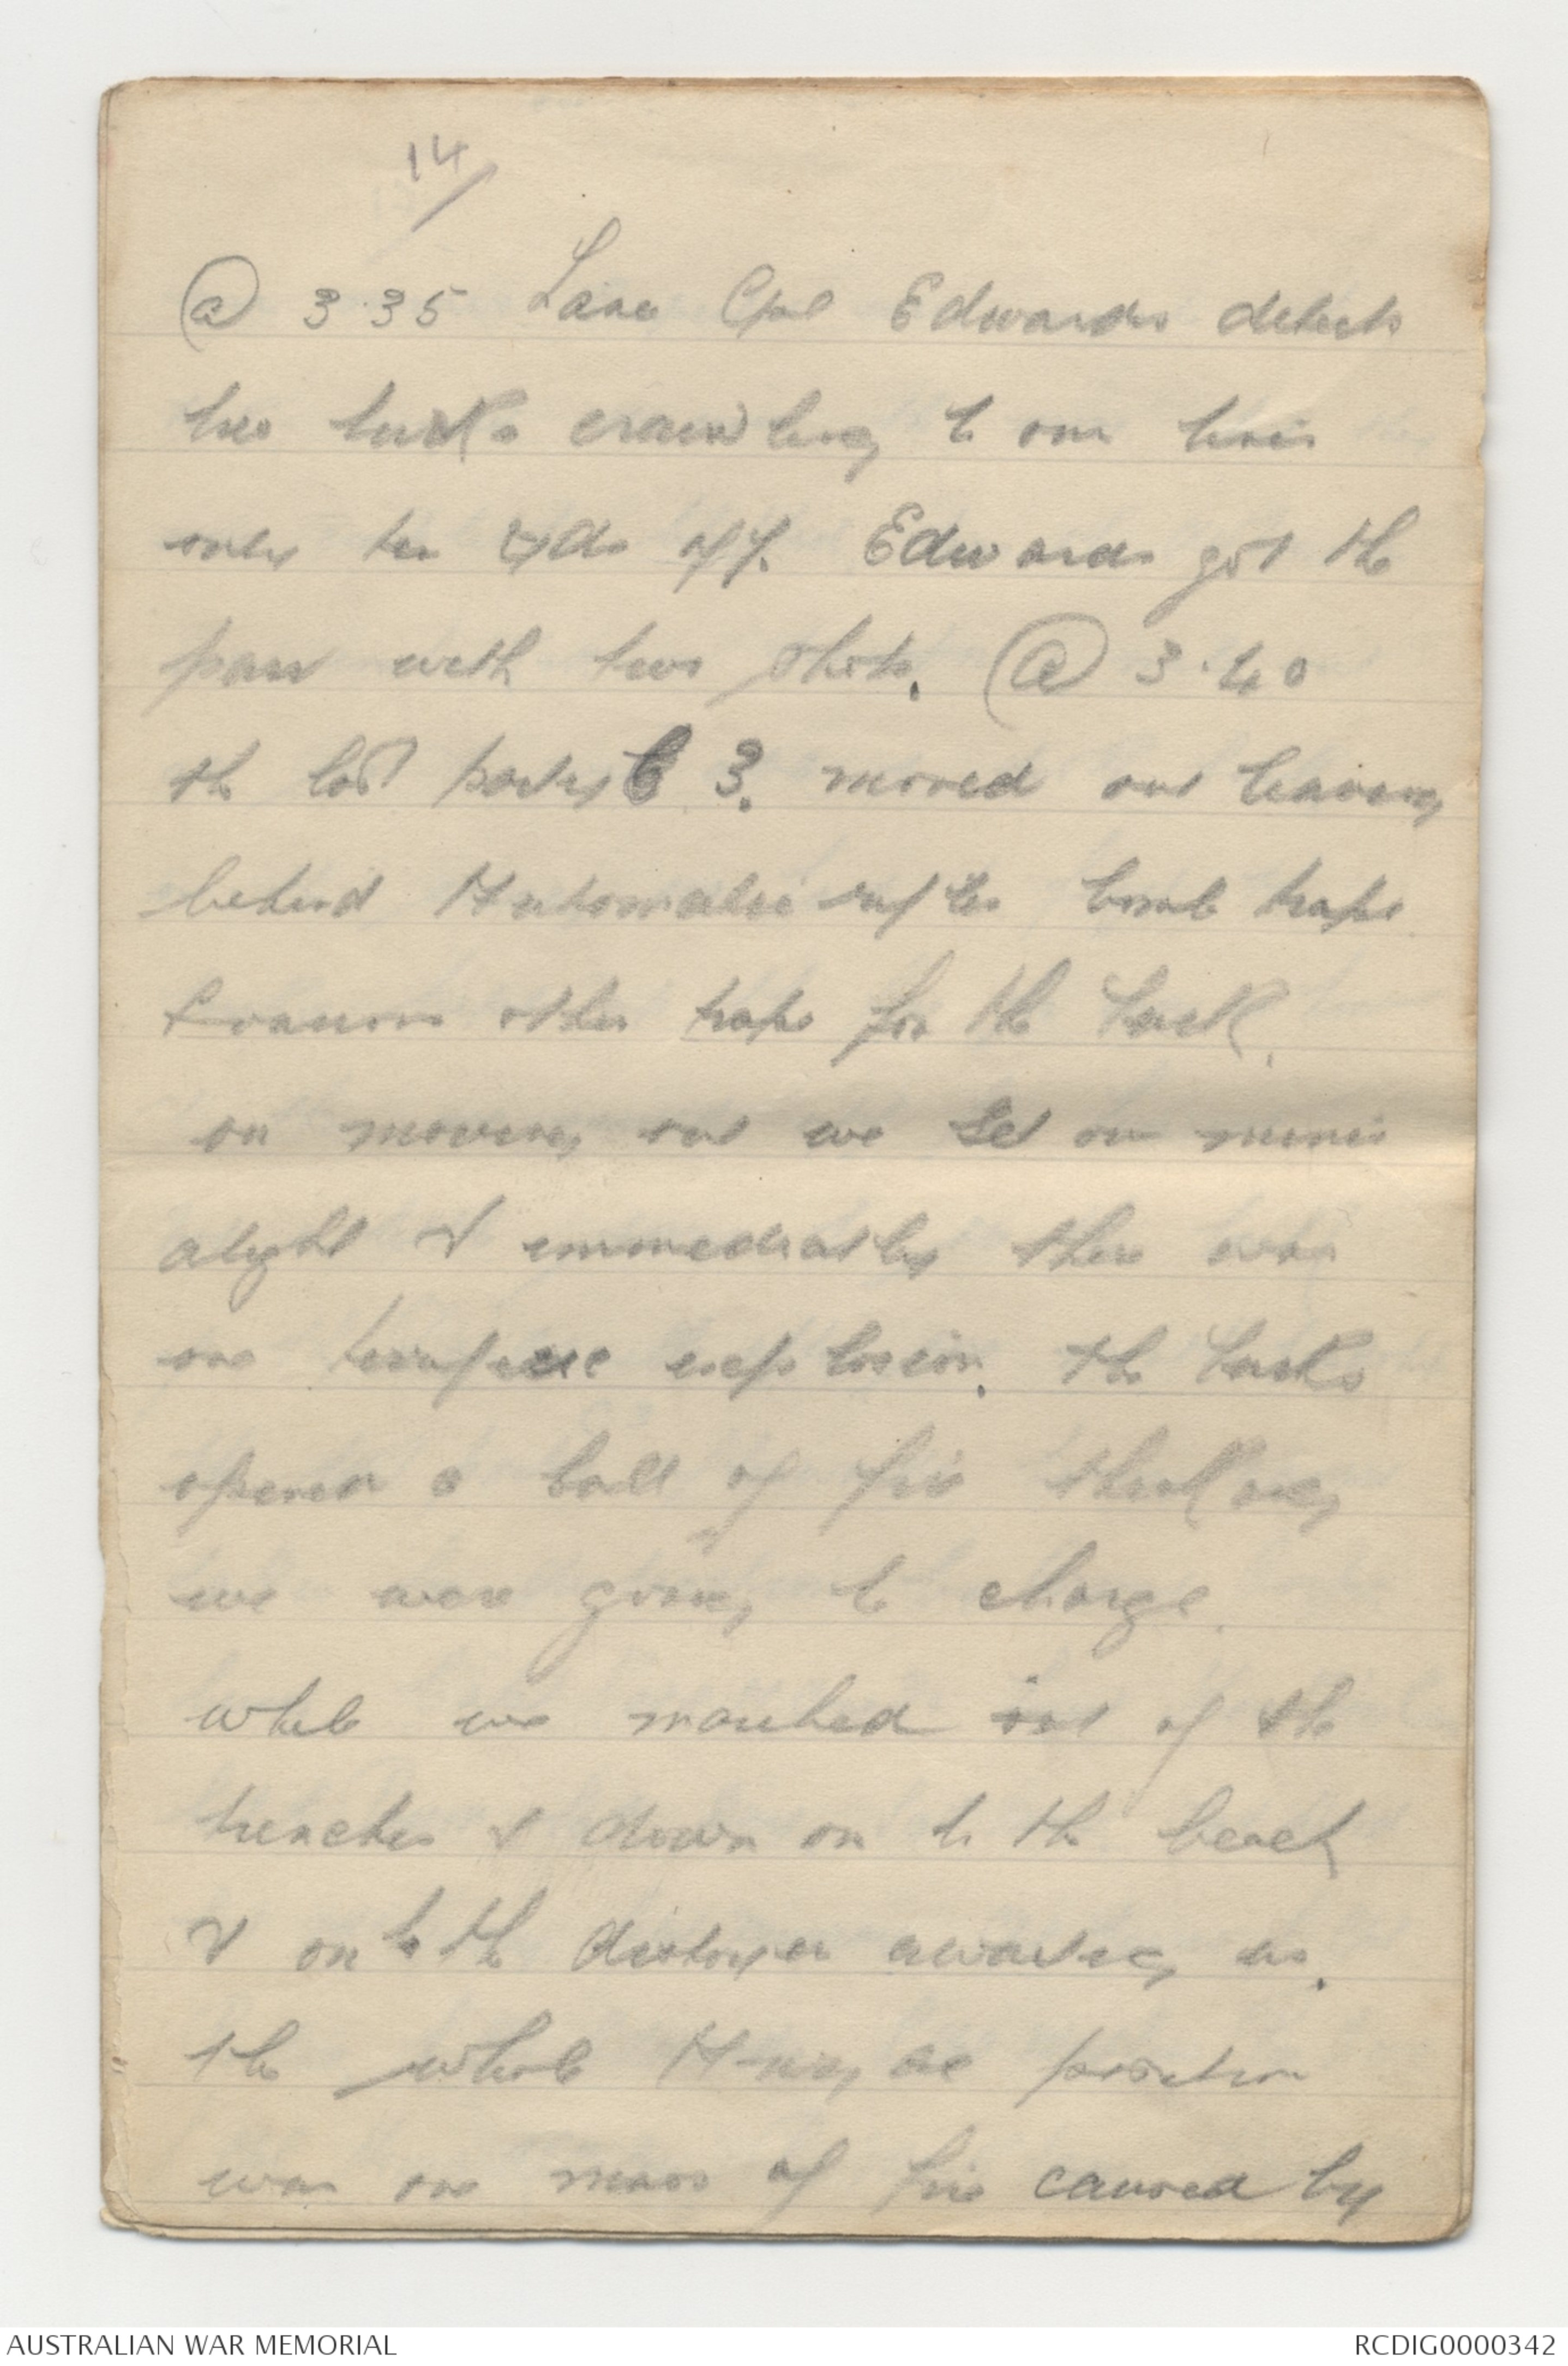 14/
@ 3.35 Lance Cpl Edwards detects
two turks crawling to our lines
only ten yds off. Edwards got the
pair with two shots. @ 3.40
the last party C 3. moved out leaving
behind Automatic rifles bomb traps
& various other traps for the turk.
on moving out we set our mines
alight & immediatly there was
one terrific explosion. the turks
opened a ball of fire thinking
we were going to charge.
while we marched out of the
trenches & down on to the beach
& on to the distoyer awaiting us.
the whole position
was one mass of fire caused by
AUSTRALIAN WAR MEMORIAL
RCDIG0000342